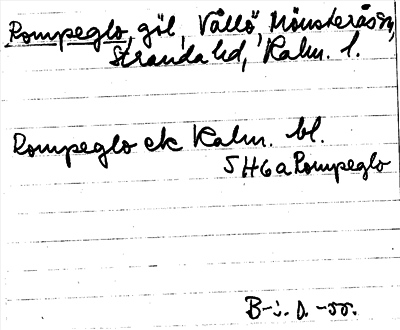 Rompeglo, göl, Vållö, Mönsterås sn,
Stranda hd, Kalm. l.
Rompeglo ek Kalm. bl.
5H6a Rompeglo
B-i. D. -55.